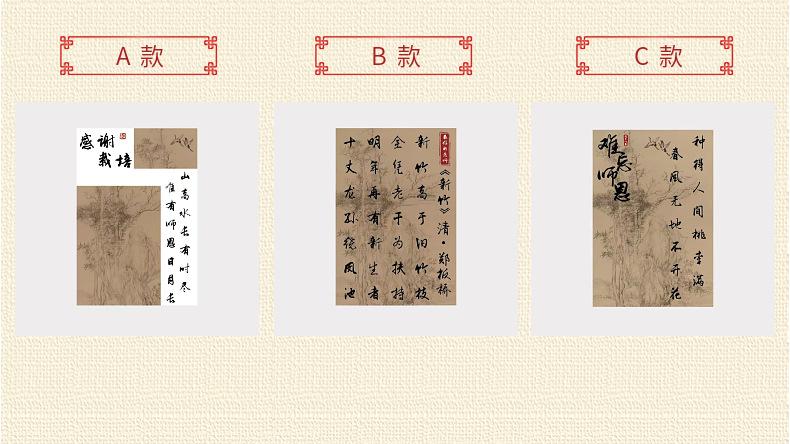 A 款
B 款
C 款
感谢
栽培
山高水长有时尽
唯有师恩日月长
《新竹》清·郑板桥
新竹高于旧竹枝
全凭老干为扶持
明年再有新生者
十丈龙孙绕凤池
难忘
师恩
种得人间桃李满
春风无地不开花